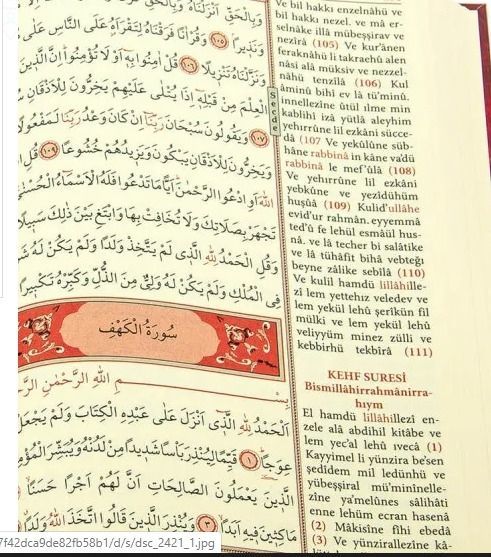 وَبِالْحَقِّ اَنْزَلْنَاهُ وَبِالْحَقِّ
وَنَذِيرًاۢ ﴿١٠٥﴾ وَقُرْاٰنًا فَرَقْنَاهُ لِتَقْرَاَهُ عَلَى النَّاسِ عَلٰى
وَنَزَّلْنَاهُ تَنْزِيلًا ﴿١٠٦﴾ قُلْ اٰمِنُوا بِهٖٓ اَوْ لَا تُؤْمِنُوا اِنَّ الَّذِينَ
الْعِلْمَ مِنْ قَبْلِهٖٓ اِذَا يُتْلٰى عَلَيْهِمْ يَخِرُّونَ لِلْاَذْقَانِ
﴿١٠٧﴾ وَيَقُولُونَ سُبْحَانَ رَبِّنَٓا اِنْ كَانَ وَعْدُ رَبِّنَا لَمَفْعُولًا
وَيَخِرُّونَ لِلْاَذْقَانِ يَبْكُونَ وَيَزِيدُهُمْ خُشُوعًا ﴿١٠٩﴾ قُلِ
اللّٰهَ اَوِ ادْعُوا الرَّحْمٰنَ اَيًّا مَا تَدْعُوا فَلَهُ الْاَسْمَٓاءُ الْحُسْنٰى
تَجْهَرْ بِصَلَاتِكَ وَلَا تُخَافِتْ بِهَا وَابْتَغِ بَيْنَ ذٰلِكَ سَبِيلًا
وَقُلِ الْحَمْدُ لِلّٰهِ الَّذٖي لَمْ يَتَّخِذْ وَلَدًا وَلَمْ يَكُنْ لَهُ
فِي الْمُلْكِ وَلَمْ يَكُنْ لَهُ وَلِيٌّ مِنَ الذُّلِّ وَكَبِّرْهُ تَكْبِيرًا
سُورَةُ الْكَهْفِ
بِسْمِ اللّٰهِ الرَّحْمٰنِ
اَلْحَمْدُ لِلّٰهِ الَّذٖٓي اَنْزَلَ عَلٰى عَبْدِهِ الْكِتَابَ وَلَمْ يَجْعَلْ
عِوَجًا ﴿١﴾ قَيِّمًا لِيُنْذِرَ بَاْسًا شَدِيدًا مِنْ لَدُنْهُ وَيُبَشِّرَ
الَّذِينَ يَعْمَلُونَ الصَّالِحَاتِ اَنَّ لَهُمْ اَجْرًا حَسَنًا
مَاكِثِينَ فِيهِ اَبَدًا ﴿٣﴾ وَيُنْذِرَ الَّذِينَ قَالُوا اتَّخَذَ اللّٰهُ وَلَدًا
Secde
Ve bil hakkı enzelnâhü ve
bil hakkı nezel. ve mâ er-
selnâke illâ mübeşşirav ve
nezîrâ (105) Ve kur'ânen
feraknâhü li takraehu alen
nâsi alâ müksiv ve nezzel-
nâhü tenzîlâ (106) Kul
âminû bihî ev lâ tü'minû.
innellezîne ûtül ılme min
kablihî izâ yütlâ aleyhim
yehırrûne lil ezkâni sücce-
dâ (107 Ve yekûlûne süb-
hâne rabbinâ in kâne va'dü
rabbinâ le mef'ûlâ (108)
Ve yehırrûne lil ezkâni
yebkûne ve yezîdühüm
huşûâ (109) Kulid'ullâhe
evid'ur rahmân. eyyemmâ
ted'û fe lehül esmâül hus-
nâ. ve lâ techer bi salâtike
ve lâ tühâfit bihâ vebteğı
beyne zâlike sebîlâ (110)
Ve kulil hamdü lillâhille-
zî lem yettehız veledev ve
lem yekül lehû şerîkün fil
mülki ve lem yekül lehû
veliyyüm minez zülli ve
kebbirhü tekbîrâ (111)
KEHF SURESİ
Bismillâhirrahmânirra-
hıym
El hamdü lillâhillezî en-
zele alâ abdihil kitâbe ve
lem yec'al lehû ıvecâ (1)
Kayyimel li yünzira be'sen
şedîdem mil ledünhü ve
yübeşşiral mü'minînelle-
zîne ya'melûnes sâlihâti
enne lehüm ecran hasenâ
(2) Mâkisîne fîhi ebedâ
(3) Ve yünzirallezîne kâ-
7f42dca9de82fb58b1/d/s/dsc_2421_1.jpg